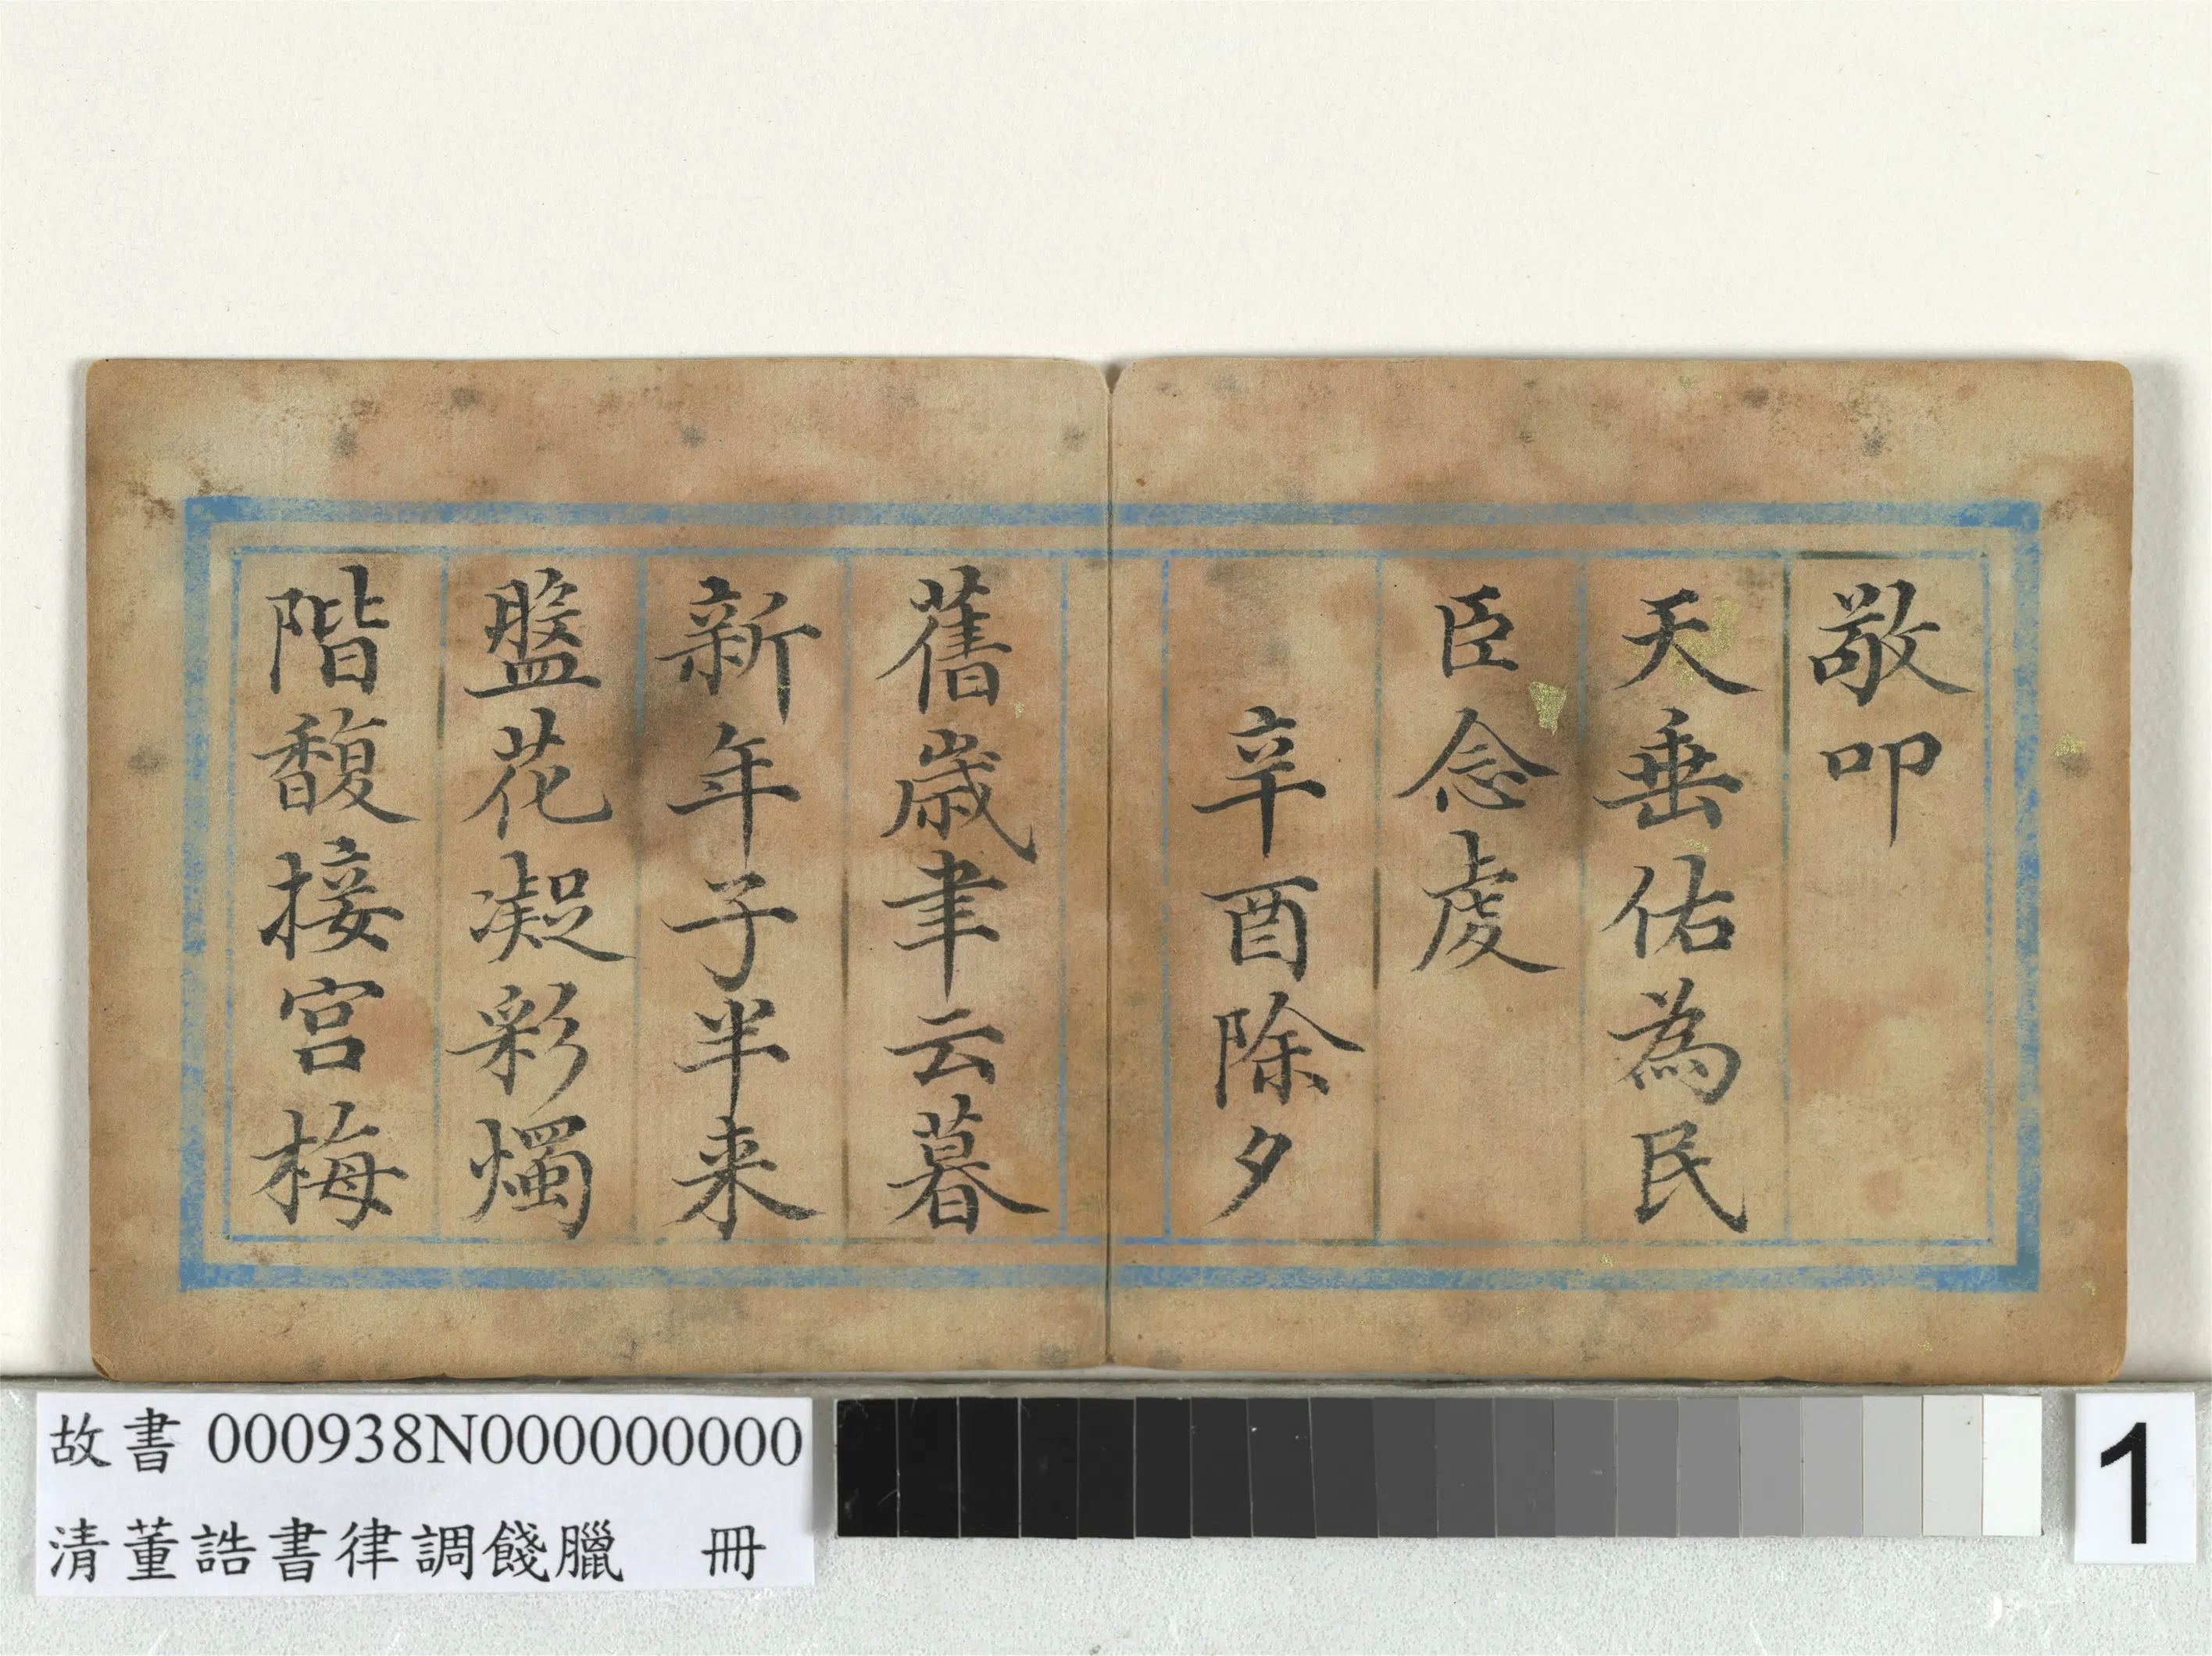 敬叩
天垂佑為民
臣念虔
辛酉除夕
舊歲聿云暮
新年子半来
盤花凝彩燭
階馥接宫梅
故書 000938N000000000
清董誥書律調餞臘 冊
1